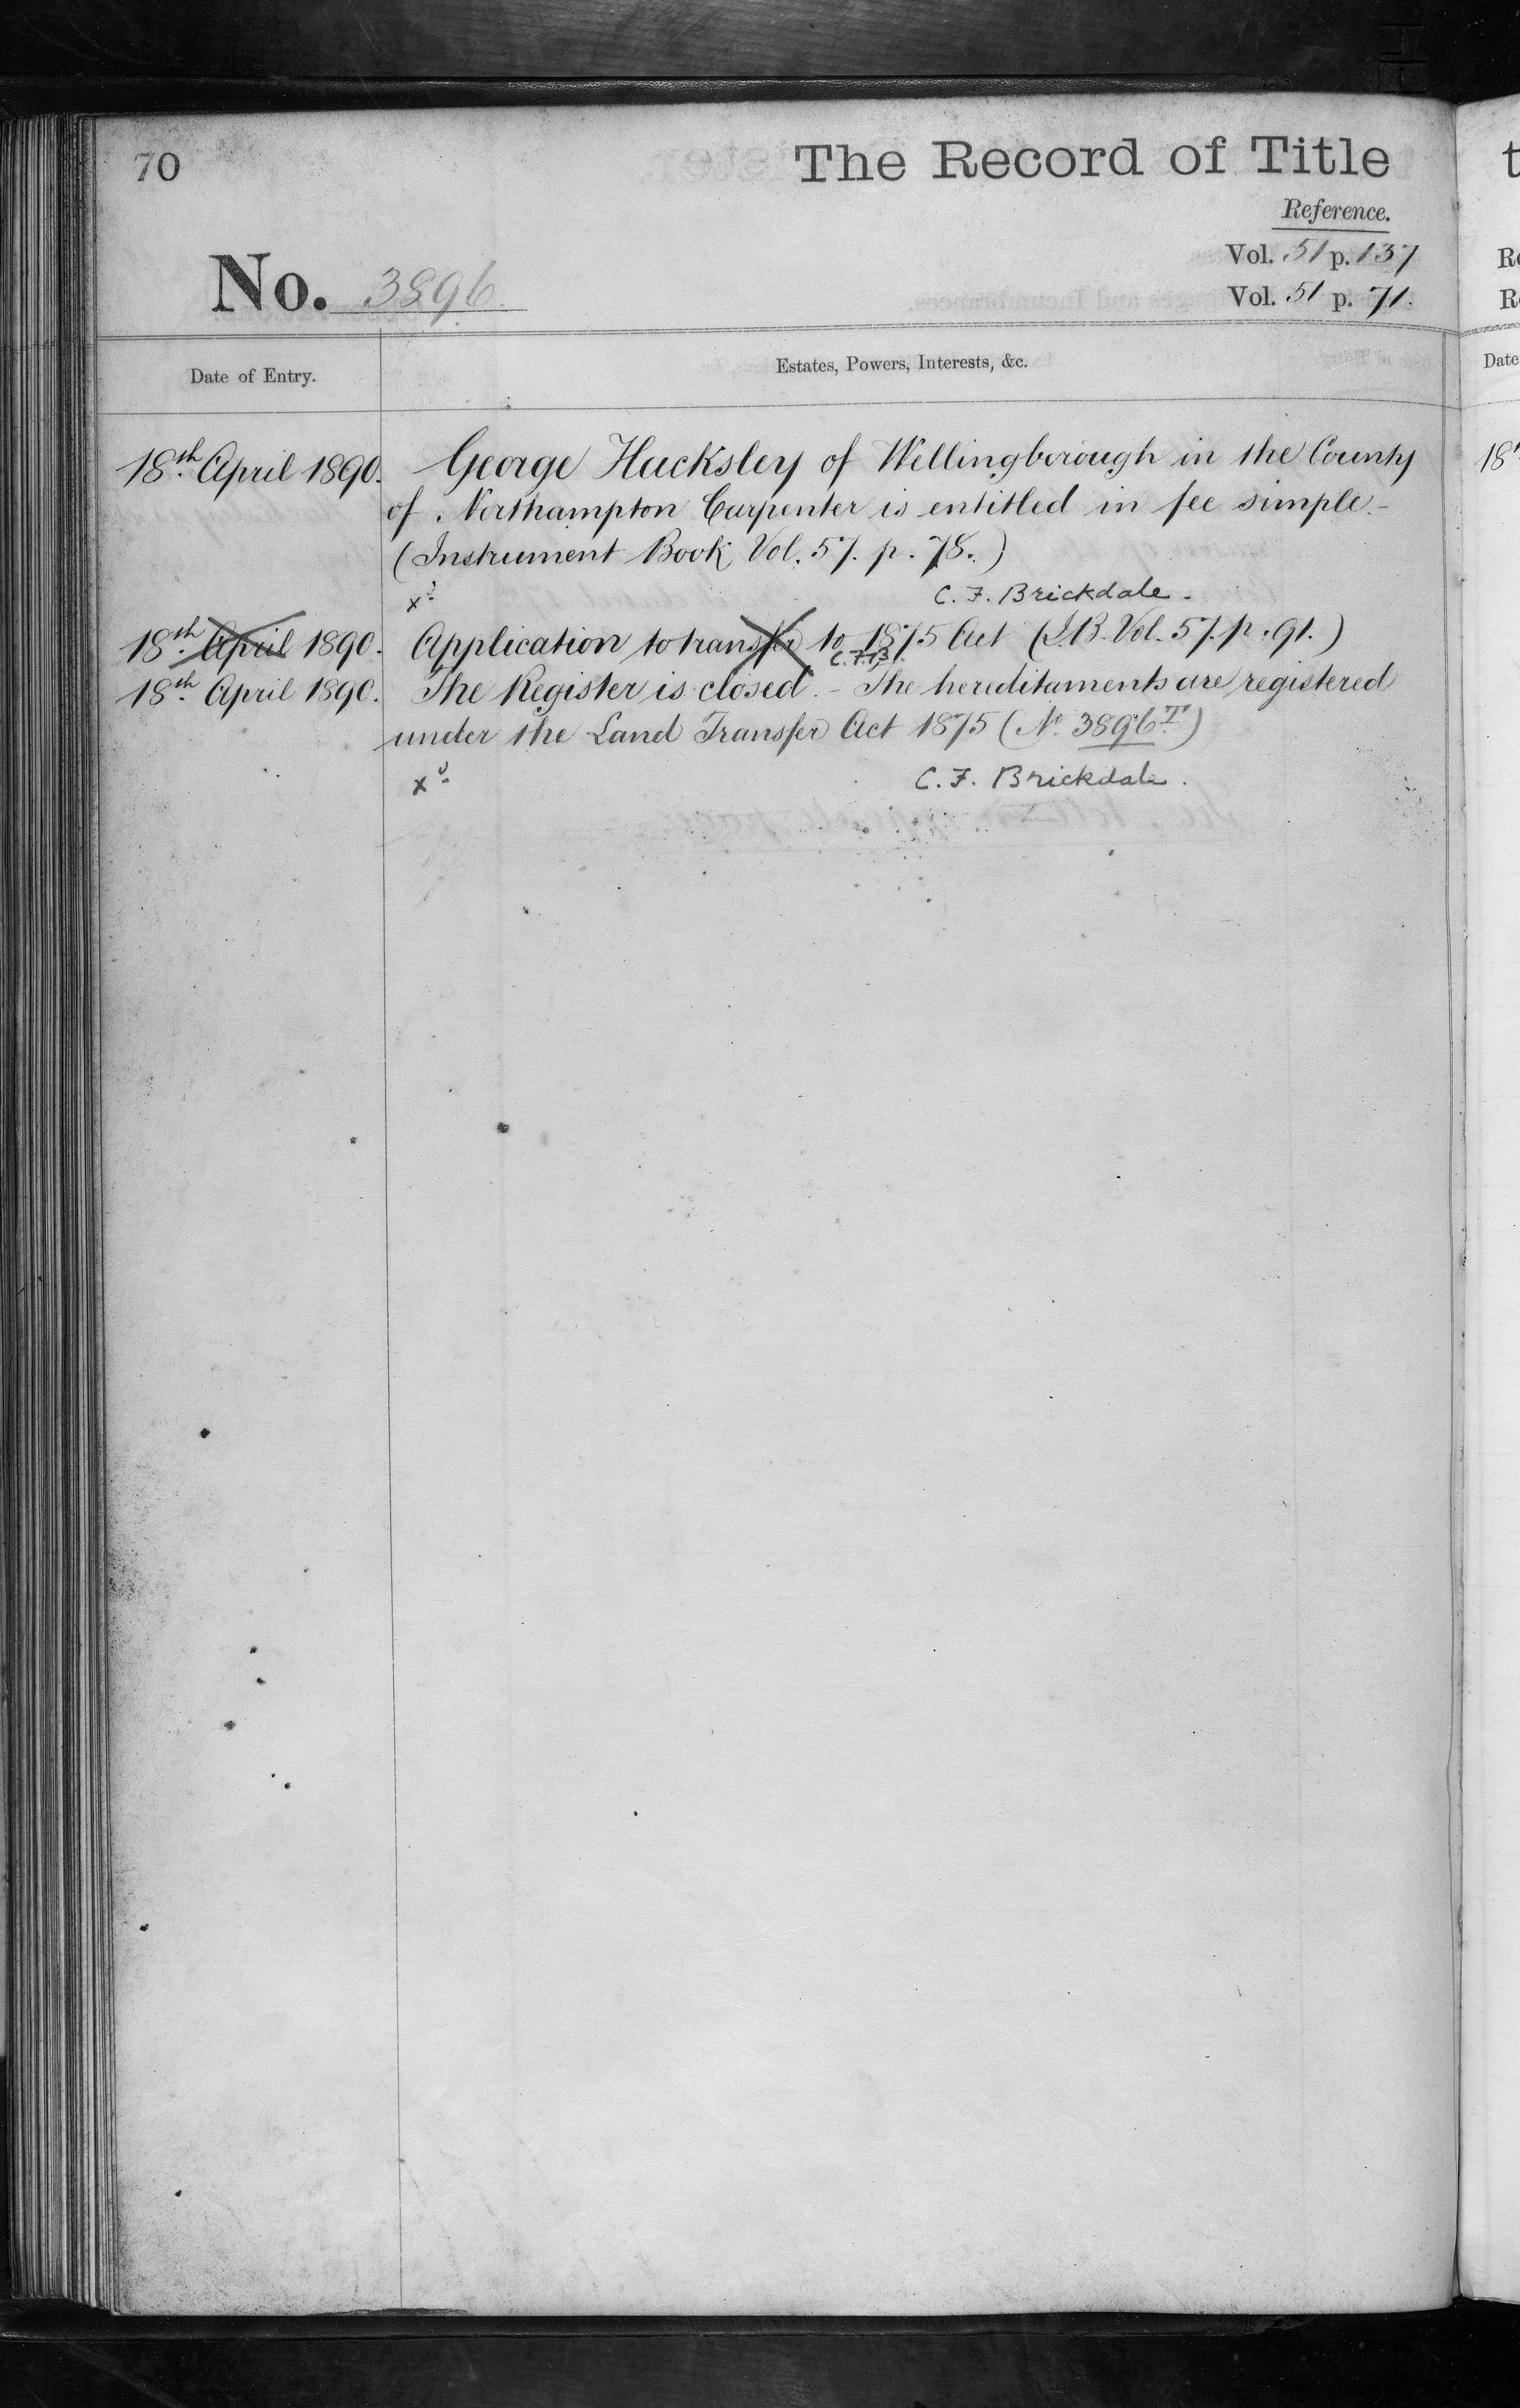 70
The Record of Title
Reference.
Vol. 51 p. 137
No. 3896.
Vol. 51 p. 71.
Date of Entry.
Estates, Powers, Interests, &c.
18th April 1890. George Hacksley of Wellingborough in the County
of Northampton Carpenter is entitled in fee simple.-
(Instrument Book Vol. 57. p. 78.)
C. F. Brickdale.
18th April 1890. Application to transfer to 1875 Act (I.B. Vol. 57. p. 91.)
C.F.B.
18th April 1890. The Register is closed. - The hereditaments are registered
under the Land Transfer Act 1875 (No. 3896T)
C. F. Brickdale.
t
Date
18